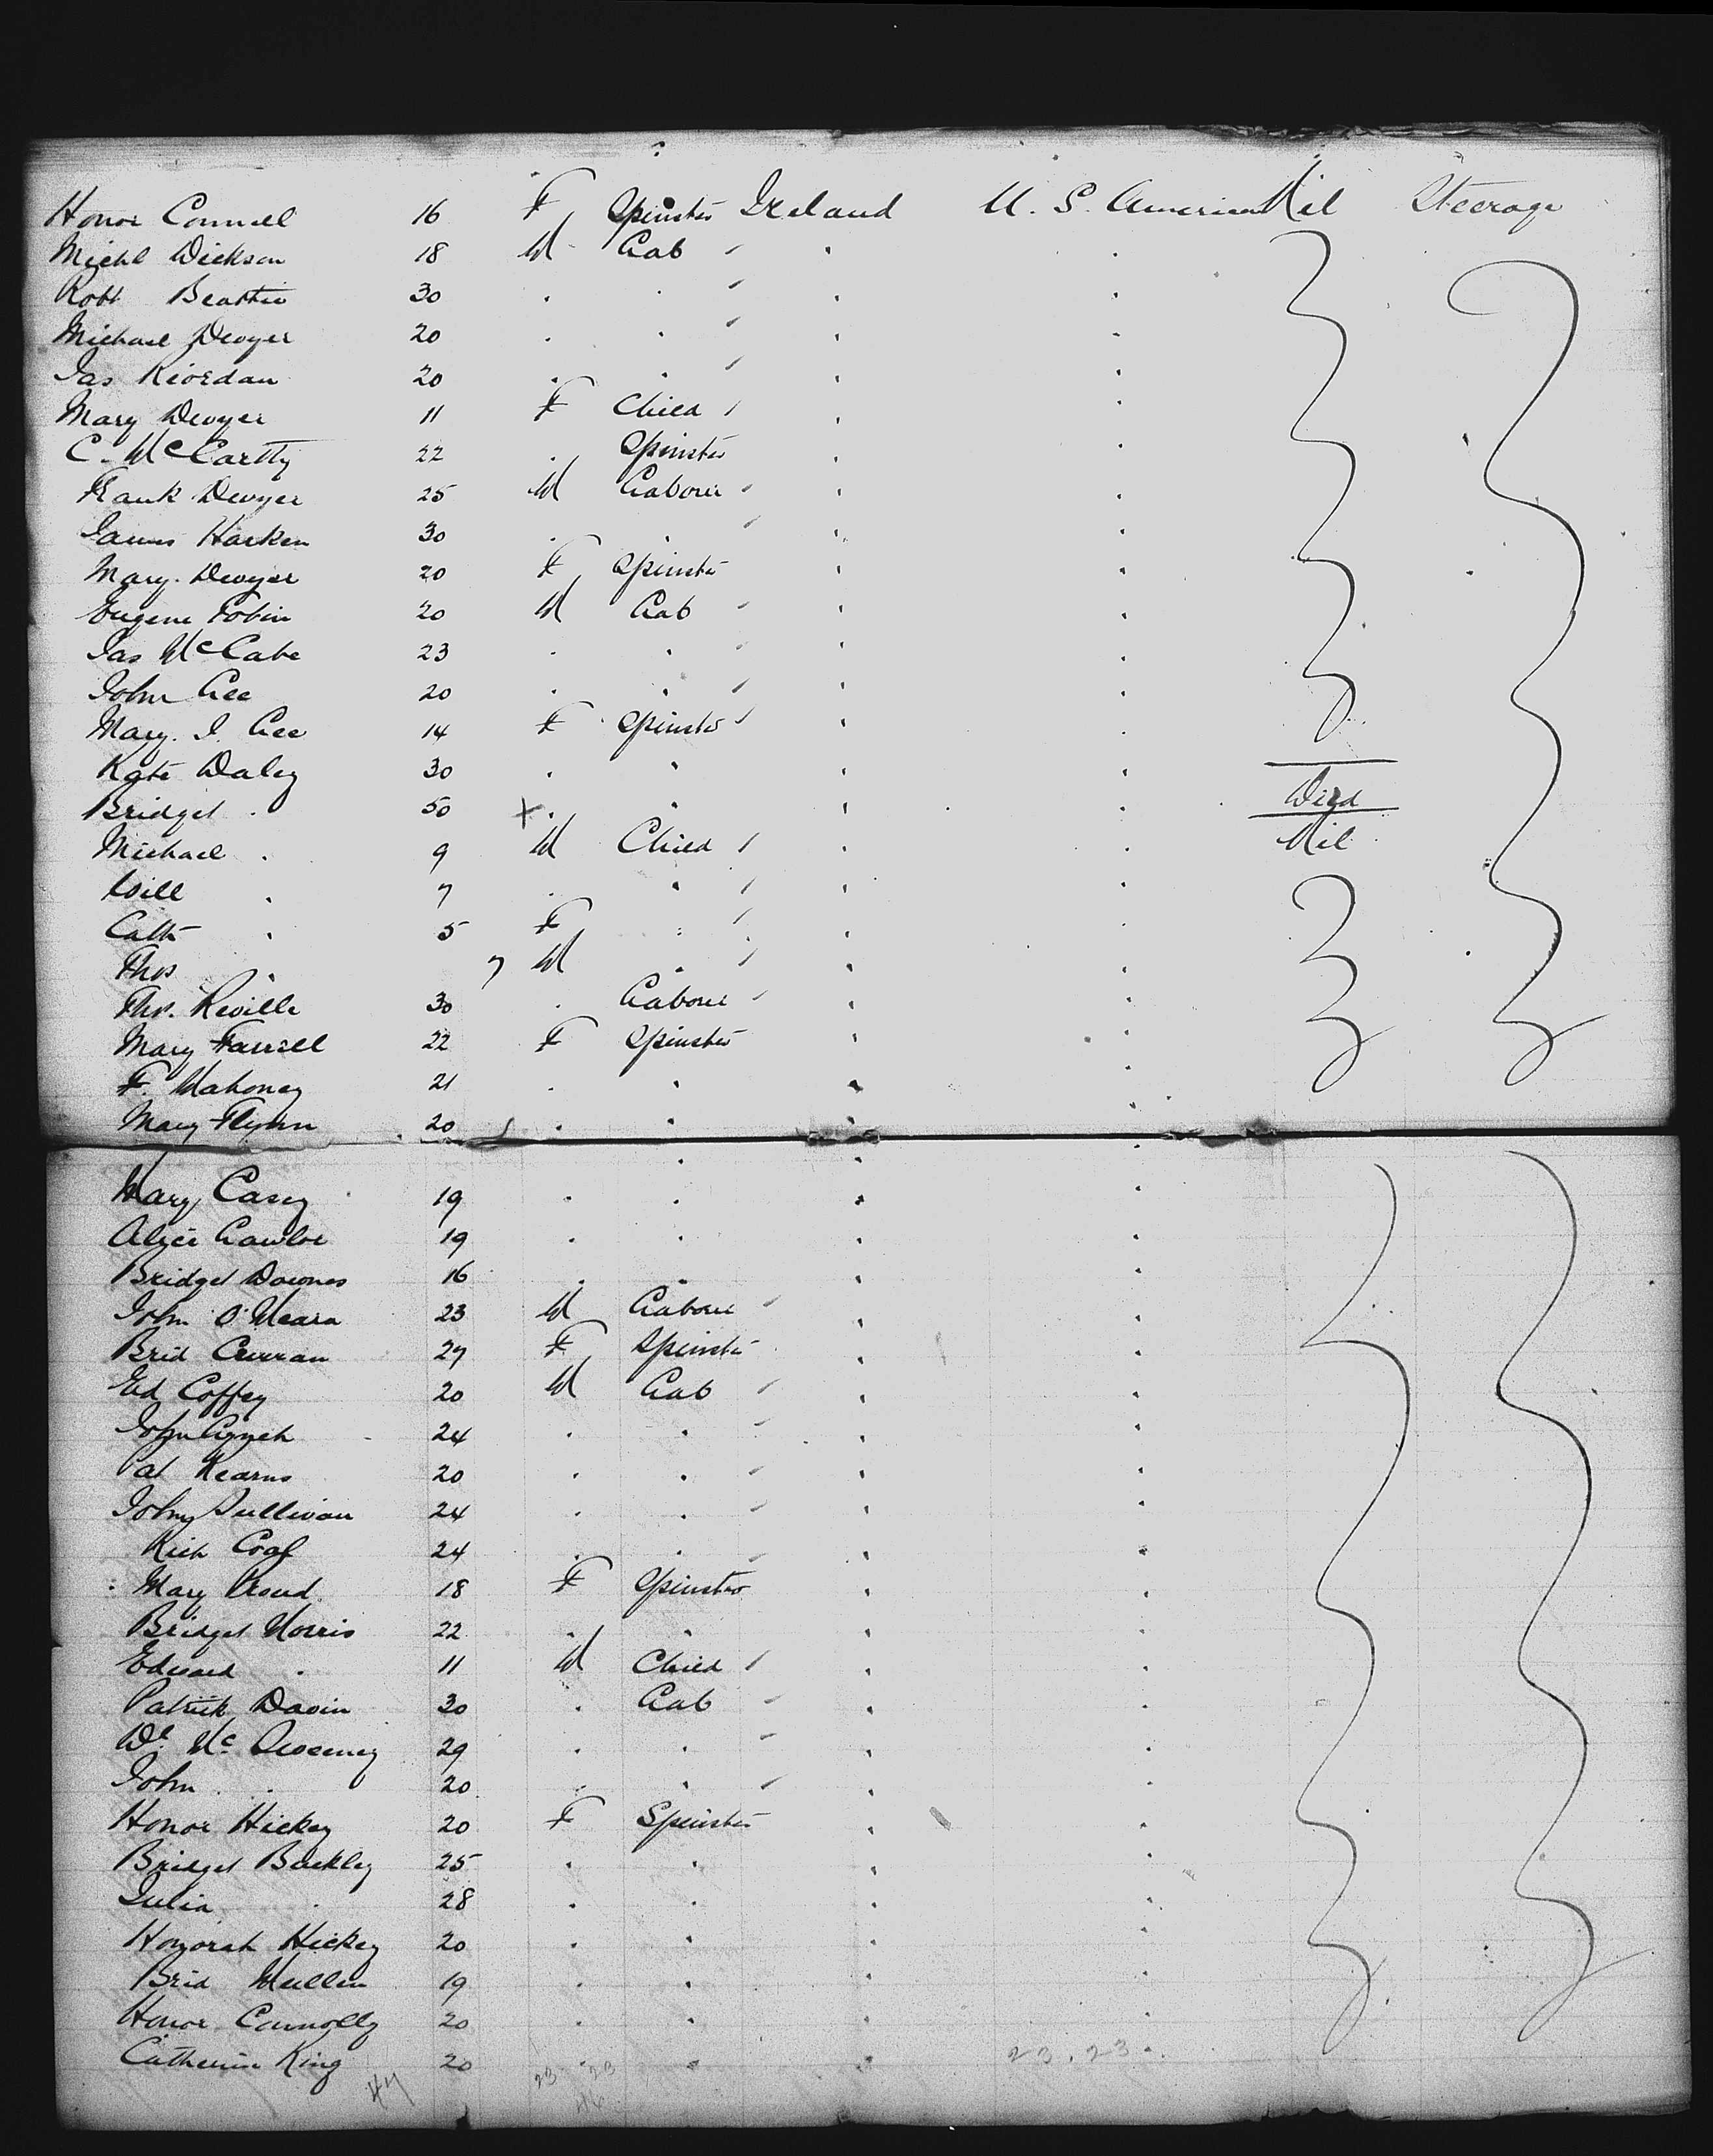 Honor Connell 16 F Spinster Ireland U. S. America Nil Steerage
Michl Dickson 18 M Lab
Robt Beattie 30
Michael Dwyer 20
Jas Riordan 20
Mary Dwyer 11 F Child
C. McCartty 22 Spinster
Frank Dwyer 25 M Labourer
James Harken 30
Mary Dwyer 20 F Spinster
Eugene Tobin 20 M Lab
Jas McCabe 23
John Lee 20
Mary J. Lee 14 F Spinster
Kate Daley 30
Bridget . 50 x Died
Michael . 9 M Child Nil
Will . 7
Cath . 5 F
Thos . 7 M
Thos. Reville 30 Labourer
Mary Farrell 22 F Spinster
F. Mahoney 21
Mary Flynn 20
Mary Casey 19
Alice Lawlor 19
Bridget Downes 16
John O'Meara 23 M Labourer
Brid Curran 27 F Spinster
Ed Coffey 20 M Lab
John Lynch 24
Pat Kearns 20
John Sullivan 24
Rich 24
Mary 18 F Spinster
Bridget Morris 22
Edward . 11 M Child
Patrick Davin 30 Lab
Dl Mc Sweeney 29
John . 20
Honor Hickey 20 F Spinster
Bridget Buckley 25
Julia . 28
Honorah Hickey 20
Brid Mullen 19
Honor Connolly 20
Catherine King 20 23.23
47 23 23
46